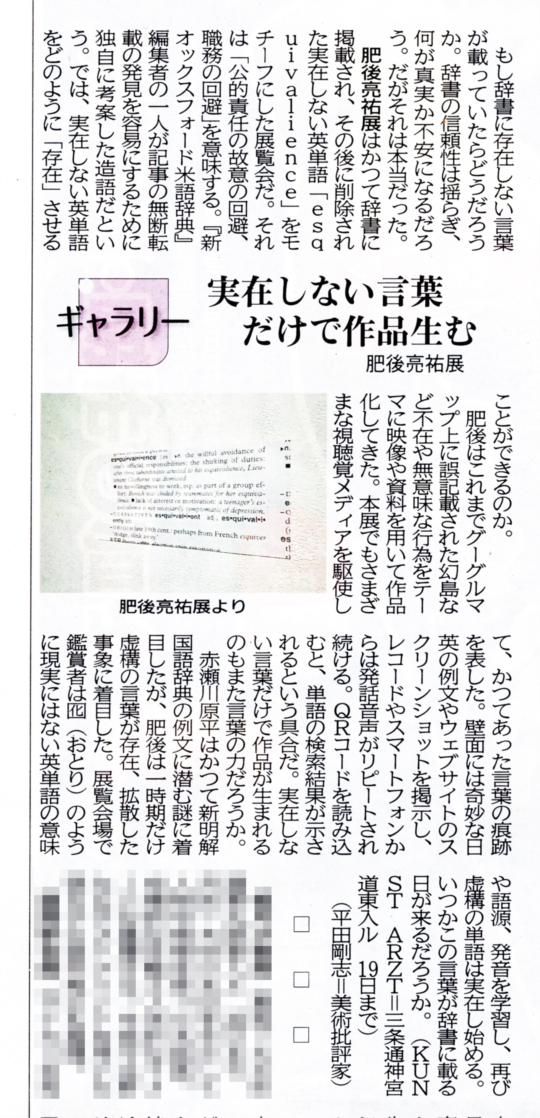 もし辞書に存在しない言葉
が載っていたらどうだろう
か。辞書の信頼性は揺らぎ、
何が真実か不安になるだろ
う。だがそれは本当だった。
肥後亮祐展はかつて辞書に
掲載され、その後に削除され
た実在しない英単語「esq
uivalience」をモ
チーフにした展覧会だ。それ
は「公的責任の故意の回避、
職務の回避」を意味する。『新
オックスフォード米語辞典』
編集者の一人が記事の無断転
載の発見を容易にするために
独自に考案した造語だとい
う。では、実在しない英単語
をどのように「存在」させる
ギャラリー
実在しない言葉
だけで作品生む
肥後亮祐展
ことができるのか。
肥後はこれまでグーグルマ
ップ上に誤記載された幻島な
ど不在や無意味な行為をテー
マに映像や資料を用いて作品
化してきた。本展でもさまざ
まな視聴覚メディアを駆使し
the willful avoidance of
one's official responsibilities; the shirking of duties:
after three subordinates attested to his esquivalience, Lieu-
tenant Claiborne was dismissed.
■ an unwillingness to work, esp. as part of a group ef-
fort: Banich was chided by teammates for her esquiva-
lience. ■ lack of interest or motivation: a teenager's es-
quivalience is not necessarily symptomatic of depression.
late 19th cent.: perhaps from French esquiver
'dodge, slink away'.
肥後亮祐展より
て、かつてあった言葉の痕跡
を表した。壁面には奇妙な日
英の例文やウェブサイトのス
クリーンショットを掲示し、
レコードやスマートフォンか
らは発話音声がリピートされ
続ける。QRコードを読み込
むと、単語の検索結果が示さ
れるという具合だ。実在しな
い言葉だけで作品が生まれる
のもまた言葉の力だろうか。
赤瀬川原平はかつて新明解
国語辞典の例文に潜む謎に着
目したが、肥後は一時期だけ
虚構の言葉が存在、拡散した
事象に着目した。展覧会場で
鑑賞者は囮（おとり）のよう
に現実にはない英単語の意味
や語源、発音を学習し、再び
虚構の単語は実在し始める。
いつかこの言葉が辞書に載る
日が来るだろうか。（KUN
ST ARZT＝三条通神宮
道東入ル 19日まで）
（平田剛志＝美術批評家）
□ □ □